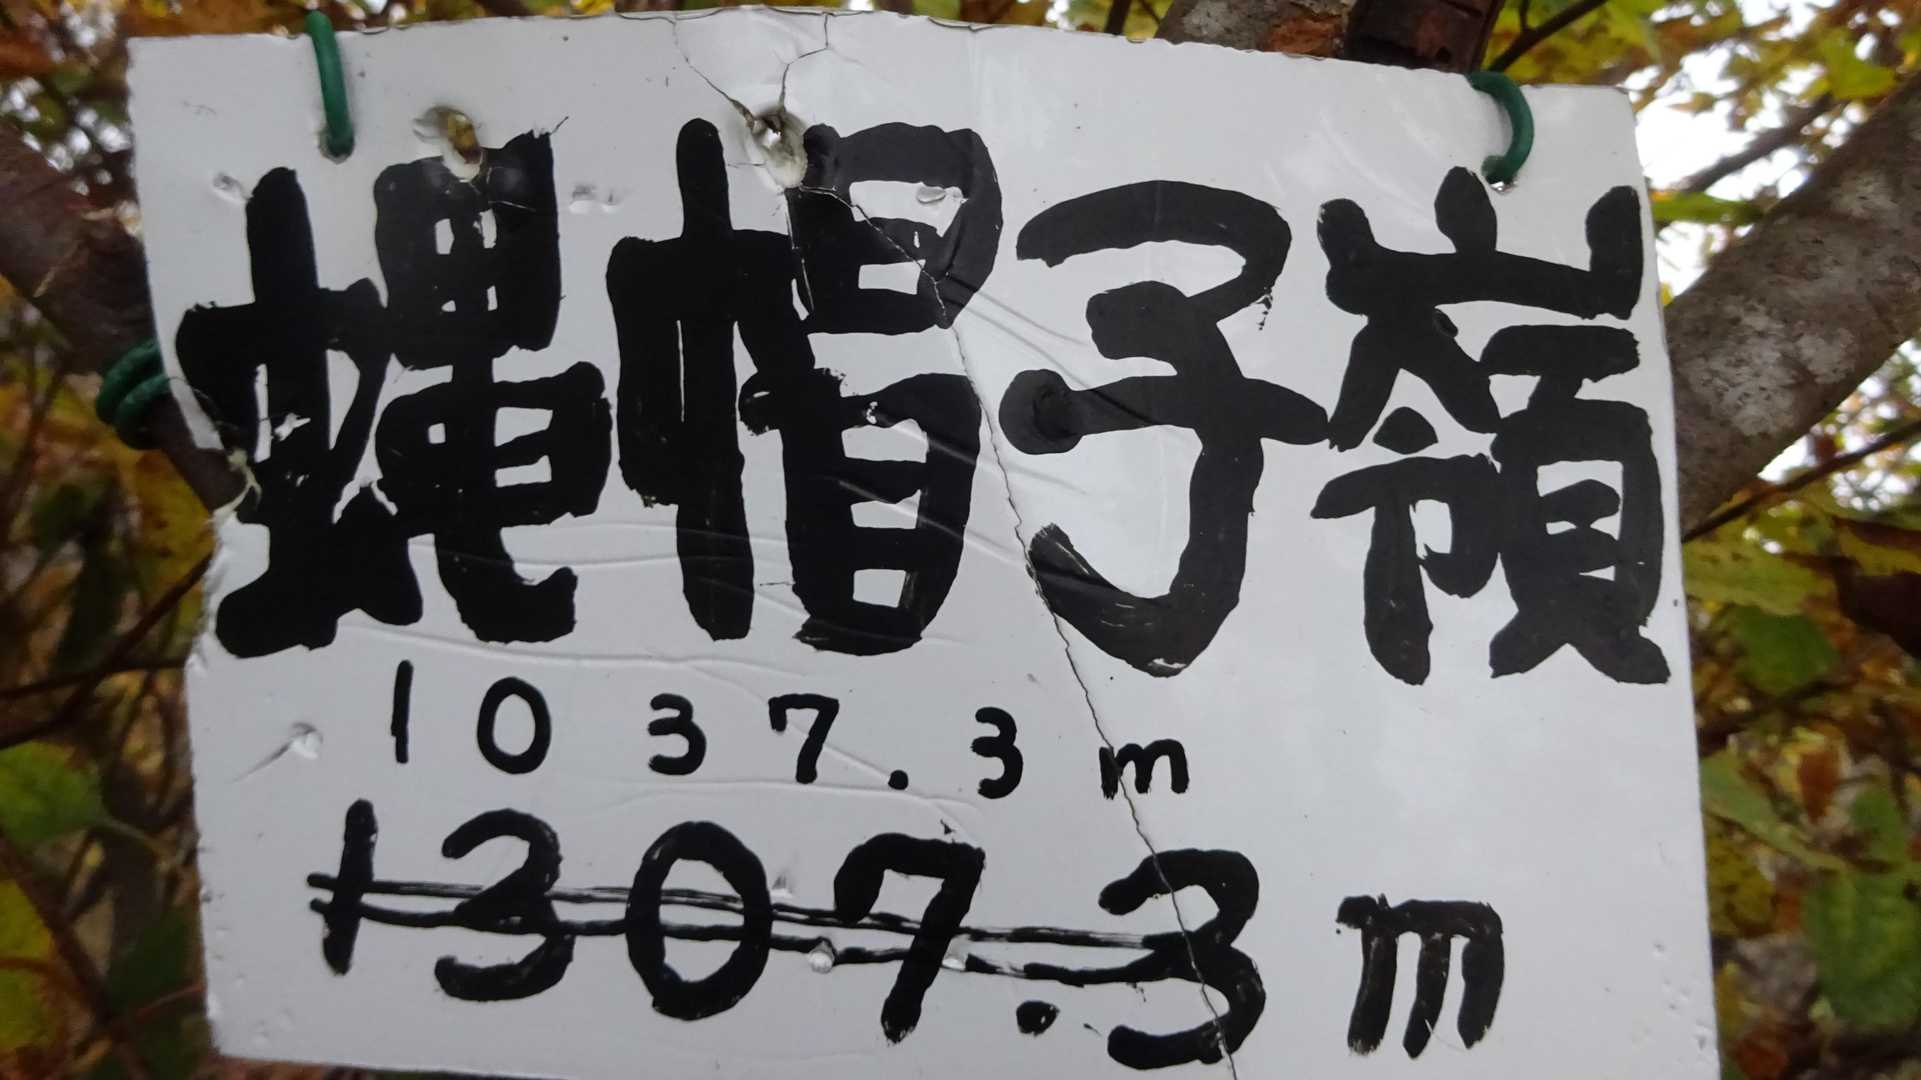 蝿帽子嶺
1037.3m
1307.3m